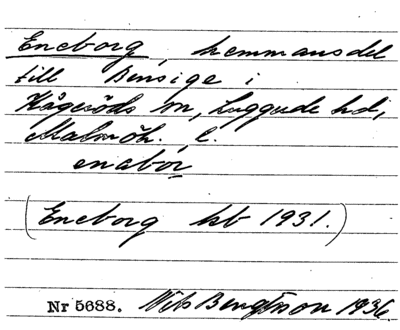 Eneborg, hemmansdel
till Bensige i
Kågeröds sn, Luggude hd,
Malmöh. l.
enabor
(Eneborg kb 1931.)
Nr 5688. Nils Bengtsson 1936.